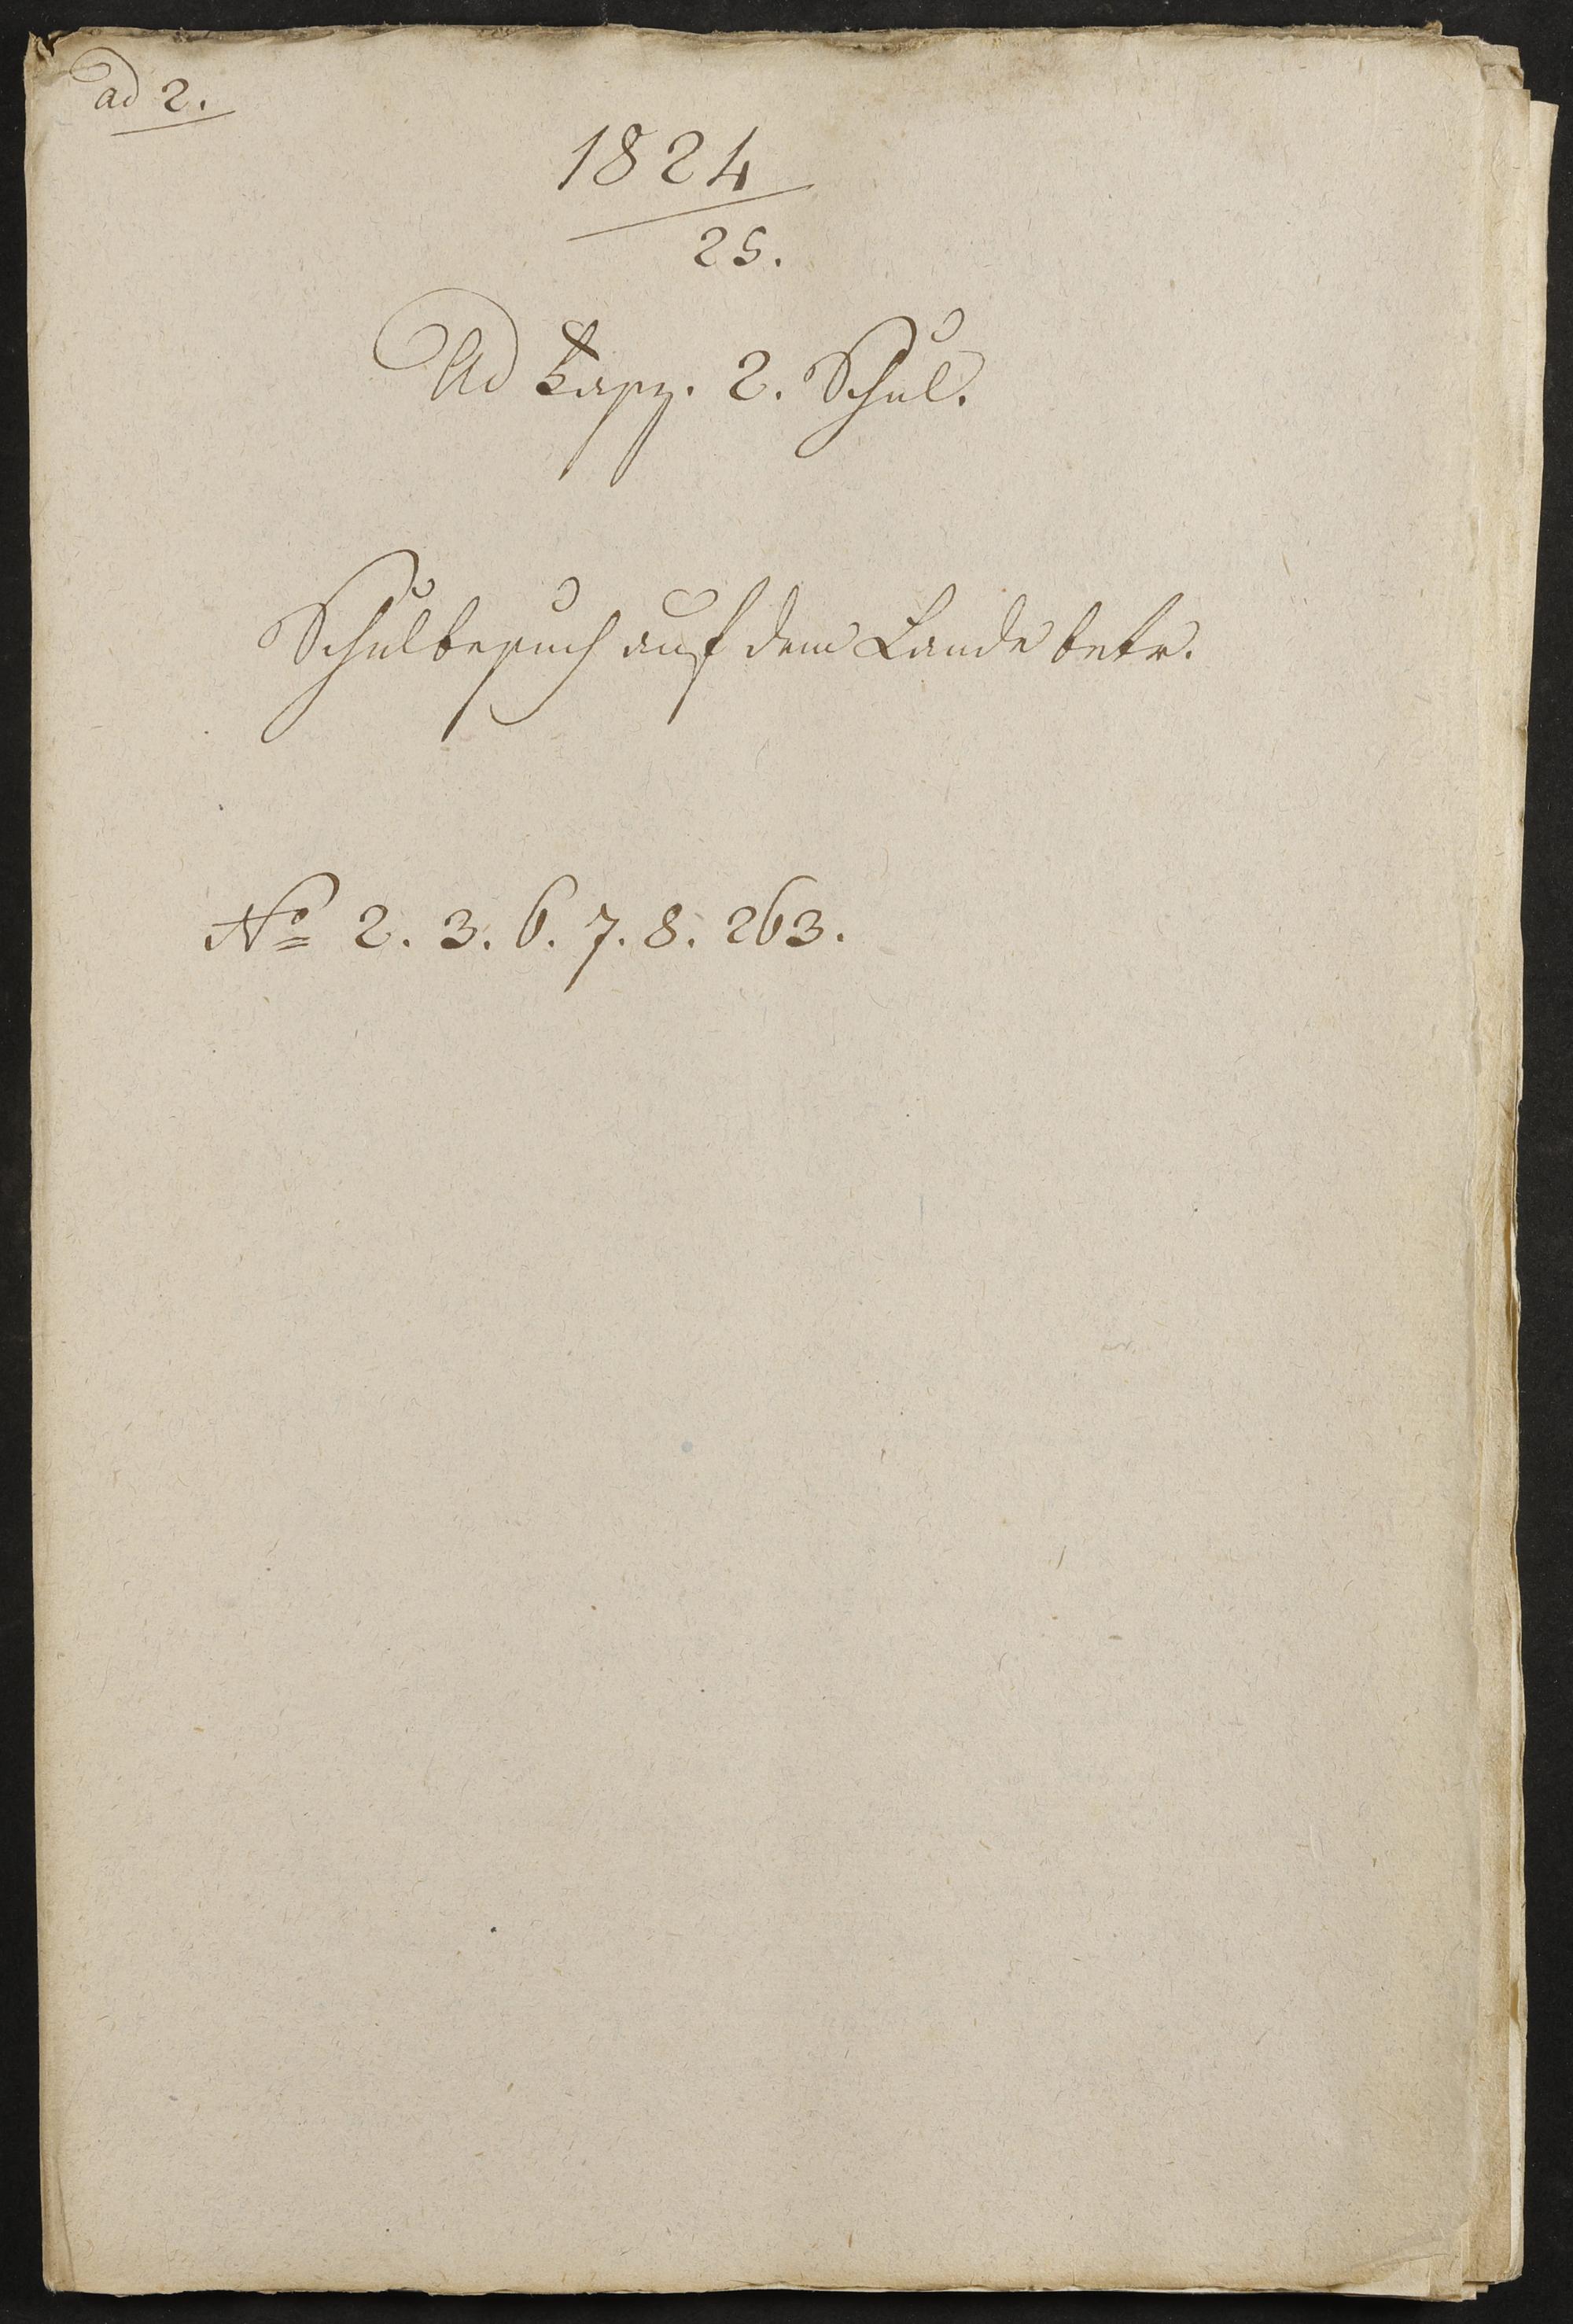 ad 2.
1824
25.
Ad Fasz. 2. Schul.
Schulbesuch auf dem Lande betr.
No 2. 3. 6. 7. 8. 263.